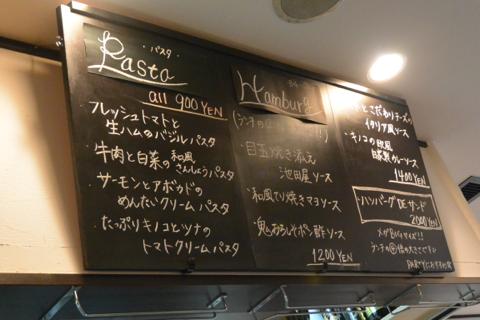 ・パスタ
Pasta
all 900 YEN
・フレッシュトマトと
生ハムのバジルパスタ
・牛肉と白菜の和風
さんしょうパスタ
・サーモンとアボカドの
めんたいクリームパスタ
・たっぷりキノコとツナの
トマトクリームパスタ
Hamburg
・目玉焼き添え
池田屋ソース
・和風てり焼きマヨソース
・鬼おろしそポン酢ソース
1200 YEN
とこだわりチーズの
イタリア風ソース
・キノコの欧風
自家製カレーソース
1400 YEN
・ハンバーグ DE サンド
2000 YEN
メガBIGサイズ!!
ランチの 倍の大きさです
PARTYにおすすめ